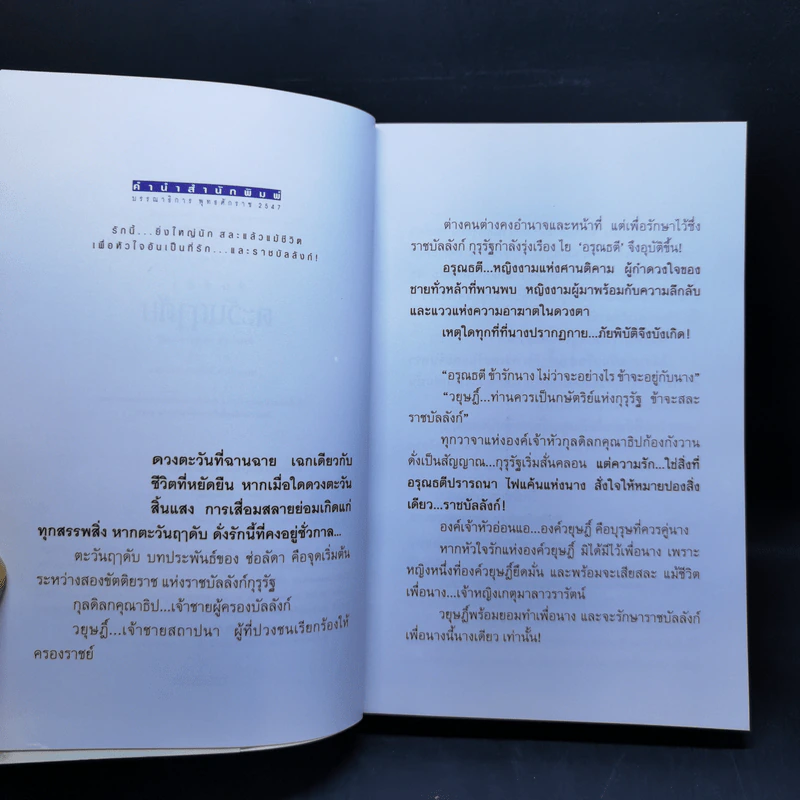 คำนำสำนักพิมพ์
บรรณาธิการ พุทธศักราช 2547
รักนี้...ยิ่งใหญ่นัก สละแล้วแม้ชีวิต
เพื่อหัวใจอันเป็นที่รัก...และราชบัลลังก์!
ดวงตะวันที่ฉานฉาย เฉกเดียวกับ
ชีวิตที่หยัดยืน หากเมื่อใดดวงตะวัน
สิ้นแสง การเสื่อมสลายย่อมเกิดแก่
ทุกสรรพสิ่ง หากตะวันฤๅดับ ดั่งรักนี้ที่คงอยู่ชั่วกาล...
ตะวันฤๅดับ บทประพันธ์ของ ช่อลัดา คือจุดเริ่มต้น
ระหว่างสองขัตติยราช แห่งราชบัลลังก์กุรุรัฐ
กุลดิลกคุณาธิป...เจ้าชายผู้ครองบัลลังก์
วยุษฎิ์...เจ้าชายสถาปนา ผู้ที่ปวงชนเรียกร้องให้
ครองราชย์
ต่างคนต่างคงอำนาจและหน้าที่ แต่เพื่อรักษาไว้ซึ่ง
ราชบัลลังก์ กุรุรัฐกำลังรุ่งเรือง ไย 'อรุณธตี' จึงอุบัติขึ้น!
อรุณธตี...หญิงงามแห่งศานติคาม ผู้กำดวงใจของ
ชายทั่วหล้าที่พานพบ หญิงงามผู้มาพร้อมกับความลึกลับ
และแววแห่งความอาฆาตในดวงตา
เหตุใดทุกที่ที่นางปรากฏกาย...ภัยพิบัติจึงบังเกิด!
"อรุณธตี ข้ารักนาง ไม่ว่าจะอย่างไร ข้าจะอยู่กับนาง"
"วยุษฎิ์...ท่านควรเป็นกษัตริย์แห่งกุรุรัฐ ข้าจะสละ
ราชบัลลังก์"
ทุกวาจาแห่งองค์เจ้าหัวกุลดิลกคุณาธิปก้องกังวาน
ดั่งเป็นสัญญาณ...กุรุรัฐเริ่มสั่นคลอน แต่ความรัก...ใช่สิ่งที่
อรุณธตีปรารถนา ไฟแค้นแห่งนาง สั่งใจให้หมายปองสิ่ง
เดียว...ราชบัลลังก์!
องค์เจ้าหัวอ่อนแอ...องค์วยุษฎิ์ คือบุรุษที่ควรคู่นาง
หากหัวใจรักแห่งองค์วยุษฎิ์ มิได้มีไว้เพื่อนาง เพราะ
หญิงหนึ่งที่องค์วยุษฎิ์ยึดมั่น และพร้อมจะเสียสละ แม้ชีวิต
เพื่อนาง...เจ้าหญิงเกตุมาลาวรารัตน์
วยุษฎิ์พร้อมยอมทำเพื่อนาง และจะรักษาราชบัลลังก์
เพื่อนางนี้นางเดียว เท่านั้น!